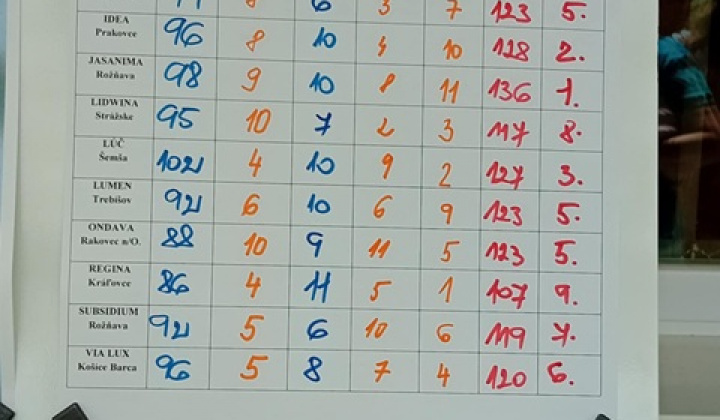 6 3 7 123 5.
IDEA
Prakovce 96 8 10 4 10 128 2.
JASANIMA
Rožňava 98 9 10 8 11 136 1.
LIDWINA
Strážske 95 10 7 2 3 117 8.
LÚČ
Šemša 102 4 10 9 2 127 3.
LUMEN
Trebišov 92 6 10 6 9 123 5.
ONDAVA
Rakovec n/O. 88 10 9 11 5 123 5.
REGINA
Kráľovce 86 4 11 5 1 107 9.
SUBSIDIUM
Rožňava 92 5 6 10 6 119 7.
VIA LUX
Košice Barca 96 5 8 7 4 120 6.